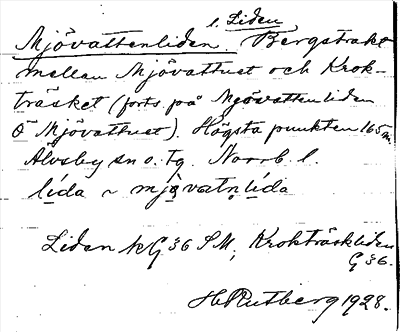 l. Liden
Mjövattenliden. Bergstrakt
mellan Mjövattnet och Krok-
träsket (forts på Mjövattenliden
Ö Mjövattnet). Högsta punkten 165 m.
Älvsby sn o. tg. Norrb. l.
lída ~ mjǫvatn̥lída
Liden kG 36 SM; Krokträskliden
G 36.
H. Rutberg 1928.